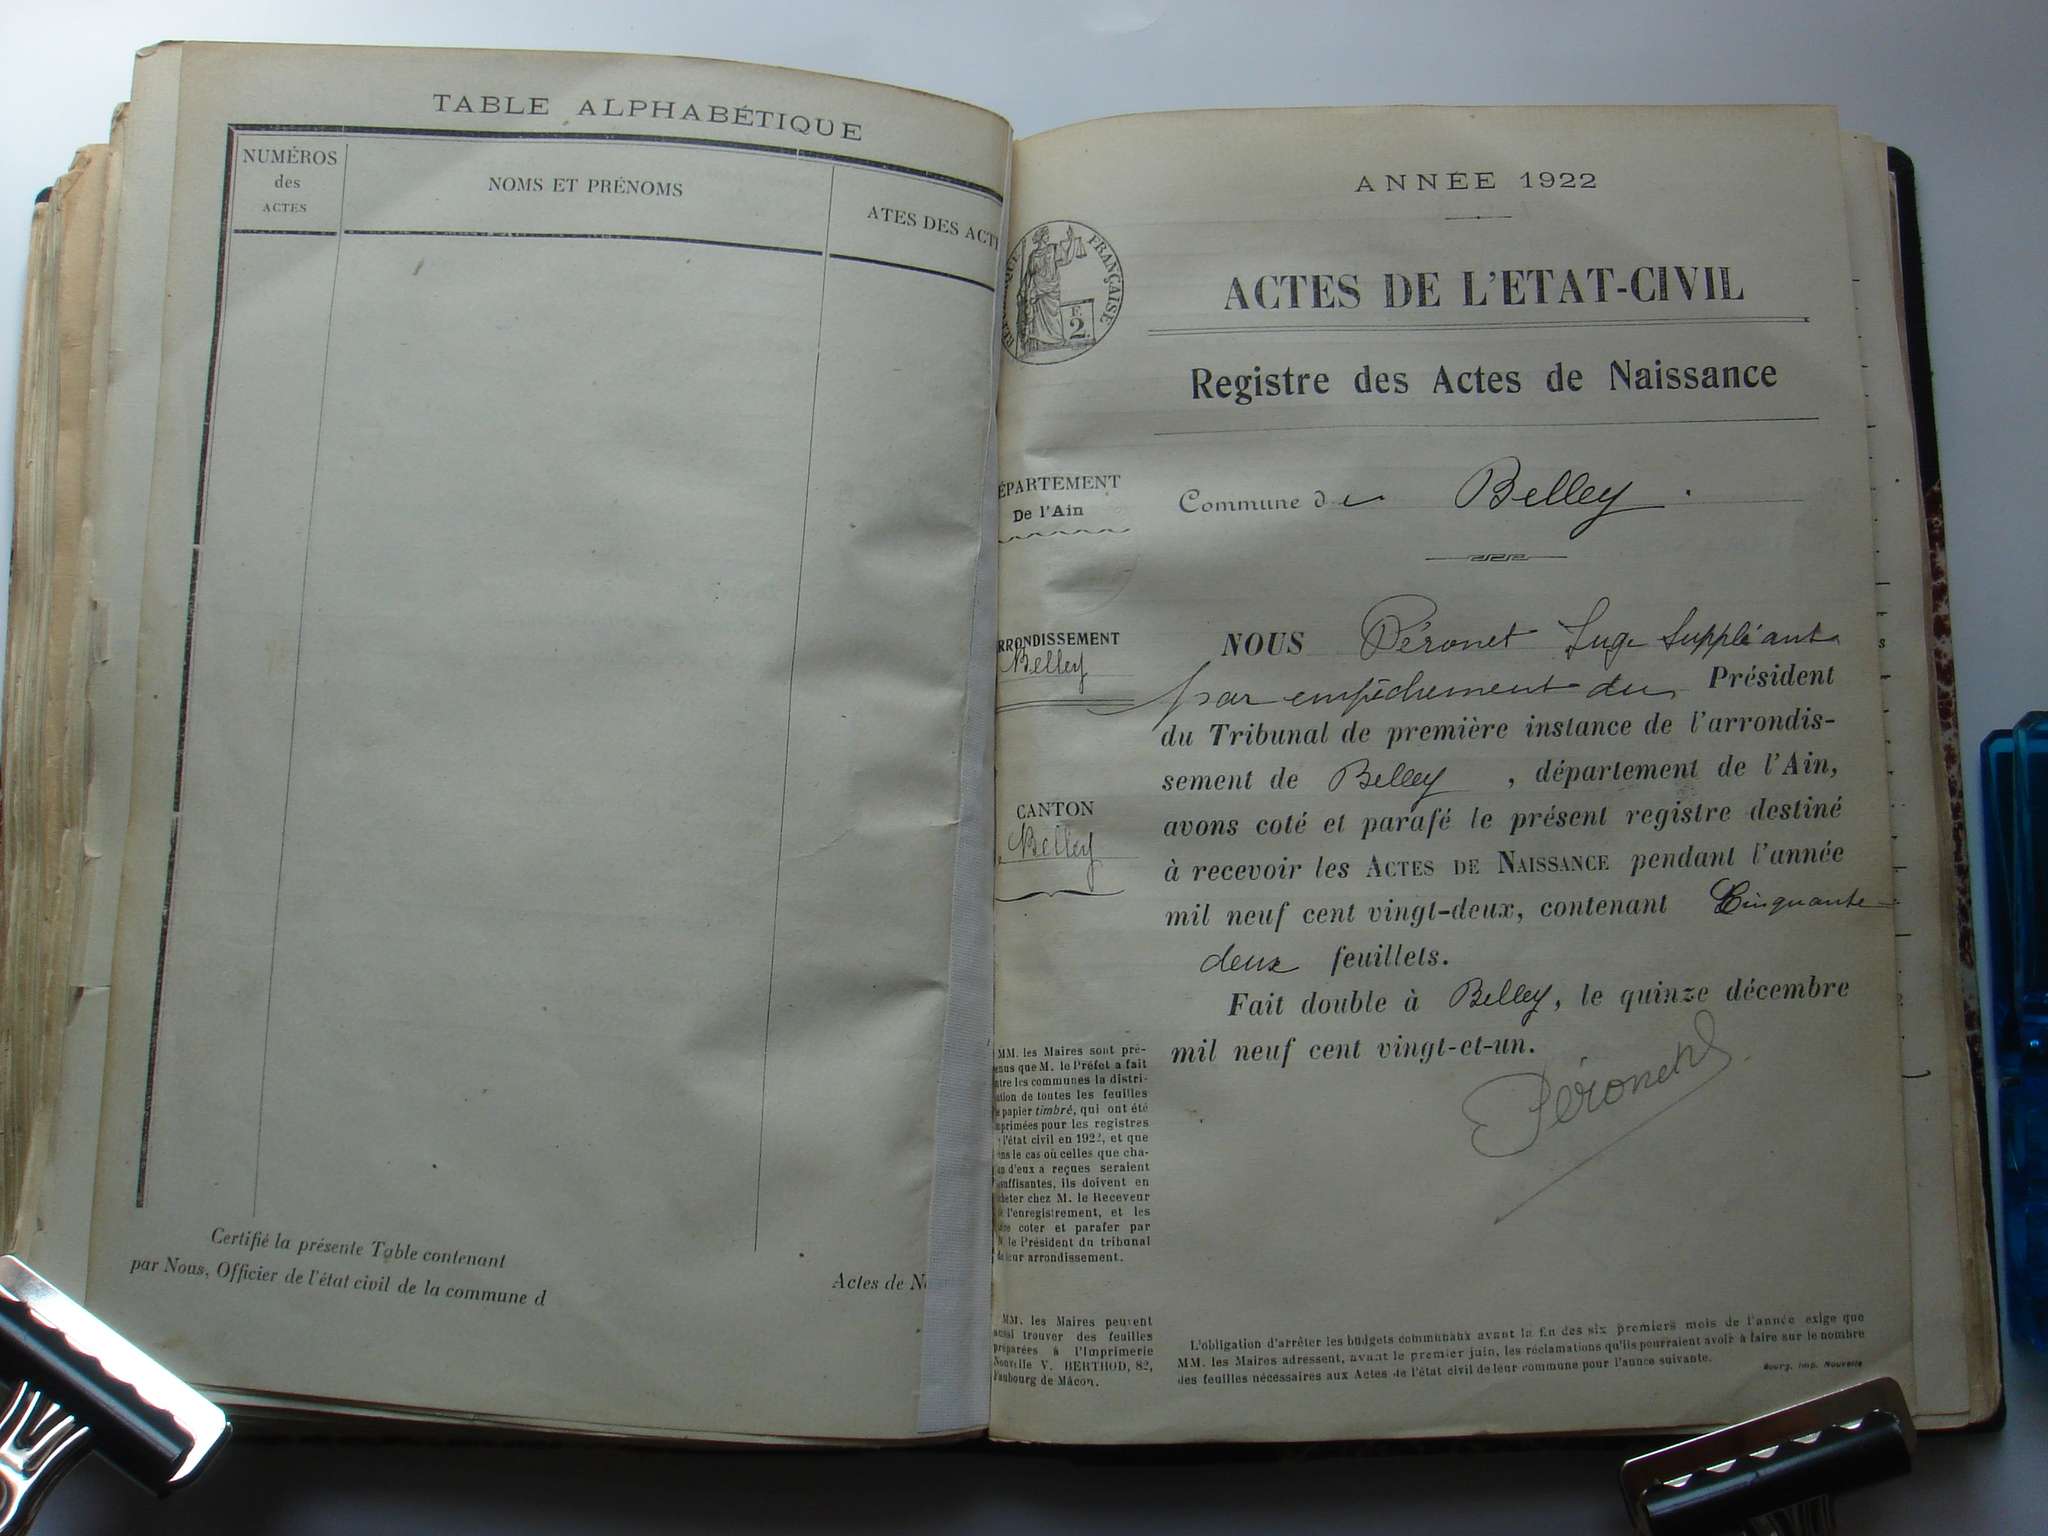 TABLE ALPHABÉTIQUE
NUMÉROS
des
ACTES
NOMS ET PRÉNOMS
ATES DES ACT
Certifié la présente Table contenant
par Nous, Officier de l'état civil de la commune d
Actes de N
ANNÉE 1922
FRANÇAISE
F.
2
ACTES DE L'ETAT-CIVIL
Registre des Actes de Naissance
ÉPARTEMENT
De l'Ain
RRONDISSEMENT
Belley
CANTON
Belley
Commune de Belley.
NOUS Péronet Juge Suppléant
par empêchement du Président
du Tribunal de première instance de l'arrondis-
sement de Belley, département de l'Ain,
avons coté et parafé le présent registre destiné
à recevoir les ACTES DE NAISSANCE pendant l'année
mil neuf cent vingt-deux, contenant Cinquante
deux feuillets.
Fait double à Belley, le quinze décembre
mil neuf cent vingt-et-un.
MM. les Maires sont pré-
enus que M. le Préfet a fait
ntre les communes la distri-
ution de toutes les feuilles
e papier timbré, qui ont été
mprimées pour les registres
l'état civil en 1922, et que
ans le cas où celles que cha-
un d'eux a reçues seraient
suffisantes, ils doivent en
cheter chez M. le Receveur
e l'enregistrement, et les
ire coter et parafer par
M. le Président du tribunal
de leur arrondissement.
MM. les Maires peuvent
aussi trouver des feuilles
préparées à l'Imprimerie
Nouvelle V. BERTHOD, 82,
Faubourg de Mâcon.
L'obligation d'arrêter les budgets communaux avant la fin des six premiers mois de l'année exige que
MM. les Maires adressent, avant le premier juin, les réclamations qu'ils pourraient avoir à faire sur le nombre
des feuilles nécessaires aux Actes de l'état civil de leur commune pour l'année suivante.
Bourg, Imp. Nouvelle